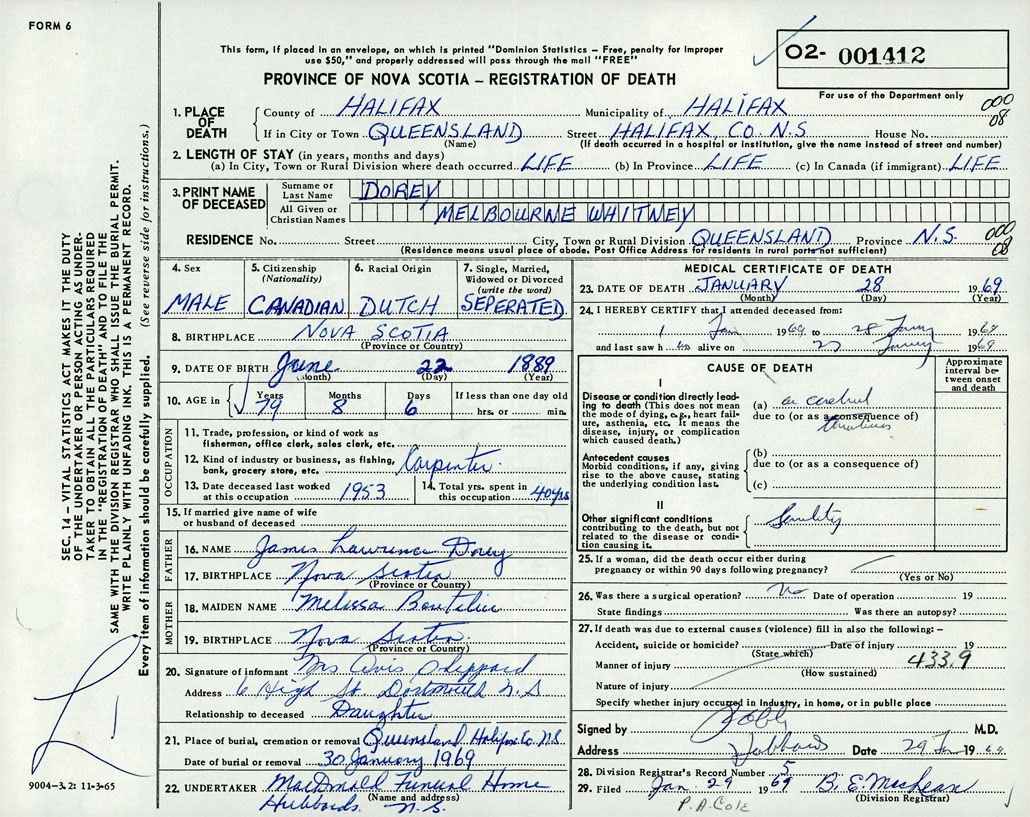 FORM 6
This form, if placed in an envelope, on which is printed "Dominion Statistics – Free, penalty for improper
use $50," and properly addressed will pass through the mail "FREE"
PROVINCE OF NOVA SCOTIA – REGISTRATION OF DEATH
02- 001412
For use of the Department only
1. PLACE OF DEATH
County of HALIFAX Municipality of HALIFAX 000
If in City or Town QUEENSLAND Street HALIFAX CO. N.S House No. 08
(Name) (If death occurred in a hospital or institution, give the name instead of street and number)
2. LENGTH OF STAY (in years, months and days)
(a) In City, Town or Rural Division where death occurred LIFE (b) In Province LIFE (c) In Canada (if immigrant) LIFE
3. PRINT NAME OF DECEASED
Surname or Last Name DOREY
All Given or Christian Names MELBOURNE WHITNEY
RESIDENCE No. Street City, Town or Rural Division QUEENSLAND Province N.S. 000
(Residence means usual place of abode. Post Office Address for residents in rural parts not sufficient) 08
4. Sex
MALE
5. Citizenship
(Nationality)
CANADIAN
6. Racial Origin
DUTCH
7. Single, Married,
Widowed or Divorced
(write the word)
SEPERATED
8. BIRTHPLACE NOVA SCOTIA
(Province or Country)
9. DATE OF BIRTH June 22 1889
(Month) (Day) (Year)
10. AGE in Years Months Days If less than one day old
79 8 6 hrs. or min.
OCCUPATION
11. Trade, profession, or kind of work as
fisherman, office clerk, sales clerk, etc.
12. Kind of industry or business, as fishing,
bank, grocery store, etc. Carpenter
13. Date deceased last worked
at this occupation 1953
14. Total yrs. spent in
this occupation 40 yrs
15. If married give name of wife
or husband of deceased
FATHER
16. NAME James Lawrence Dorey
17. BIRTHPLACE Nova Scotia
(Province or Country)
MOTHER
18. MAIDEN NAME Melissa Boutilier
19. BIRTHPLACE Nova Scotia
(Province or Country)
20. Signature of informant Mrs Avis Sheppard
Address 6 High St. Dartmouth N.S
Relationship to deceased Daughter
21. Place of burial, cremation or removal Queensland Halifax Co. N.S.
Date of burial or removal 30 January 1969
22. UNDERTAKER MacDonald Funeral Home
(Name and address)
Hubbards N.S.
MEDICAL CERTIFICATE OF DEATH
23. DATE OF DEATH JANUARY 28 1969
(Month) (Day) (Year)
24. I HEREBY CERTIFY that I attended deceased from:
1 Jan 1969 to 28 1969
and last saw h im alive on 1969
CAUSE OF DEATH
Approximate
interval between onset
and death
I
Disease or condition directly leading to death (This does not
mean the mode of dying, e.g., heart failure, asthenia, etc. It means the
disease, injury, or complication
which caused death.)
(a) cerebral
due to (or as a consequence of)
thrombosis
Antecedent causes
Morbid conditions, if any, giving
rise to the above cause, stating
the underlying condition last.
(b)
due to (or as a consequence of)
(c)
II
Other significant conditions
contributing to the death, but not
related to the disease or condition causing it.
Senility
25. If a woman, did the death occur either during
pregnancy or within 90 days following pregnancy?
(Yes or No)
26. Was there a surgical operation? No Date of operation 19
State findings Was there an autopsy?
27. If death was due to external causes (violence) fill in also the following: –
Accident, suicide or homicide? Date of injury 19
(State which) 433.9
Manner of injury
(How sustained)
Nature of injury
Specify whether injury occurred in Industry, in home, or in public place
Signed by M.D.
Address Hubbards Date 29 Jan 1969
28. Division Registrar's Record Number 5
29. Filed Jan. 29 1969 B. E. MacLean
(Division Registrar)
P.A. Cole
SEC. 14 – VITAL STATISTICS ACT MAKES IT THE DUTY
OF THE UNDERTAKER OR PERSON ACTING AS UNDERTAKER TO OBTAIN ALL THE PARTICULARS REQUIRED
IN THE "REGISTRATION OF DEATH" AND TO FILE THE
SAME WITH THE DIVISION REGISTRAR WHO SHALL ISSUE THE BURIAL PERMIT.
WRITE PLAINLY WITH UNFADING INK. THIS IS A PERMANENT RECORD.
Every item of information should be carefully supplied. (See reverse side for instructions.)
9004–3.2: 11-3-65